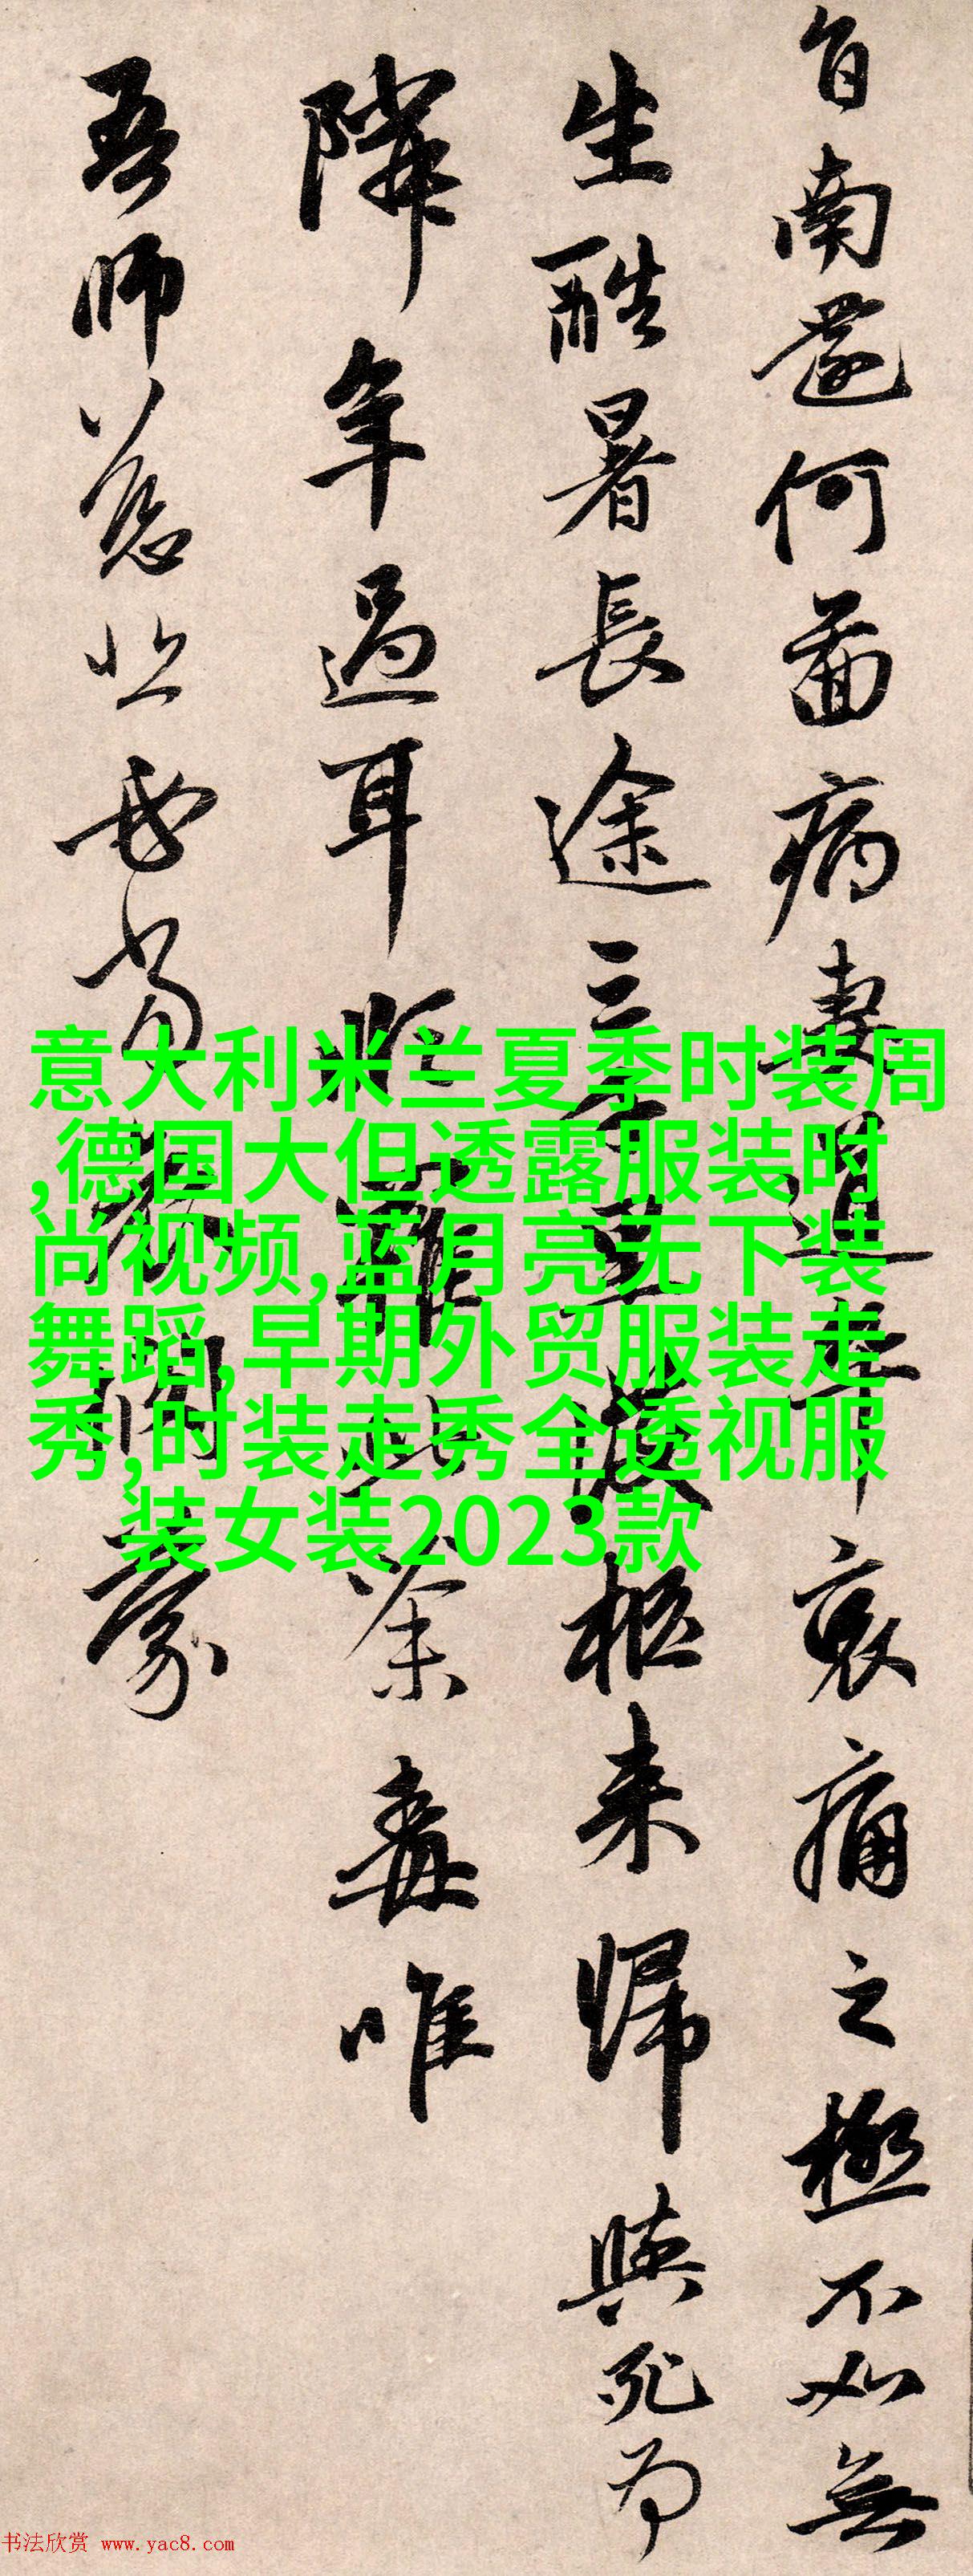 自南還何啚病妻道卒哀痛之極不如無
生酷暑長途三千里護柩来歸與死為
隣年過耳順罹此荼毒唯
吾師慈悲必當哀憫蒙
意大利米兰夏季时装周
,德国大但透露服装时
尚视频,蓝月亮无下装
舞蹈,早期外贸服装走
秀,时装走秀全透视服
装女装2023款
书法欣赏 www.yac8.com